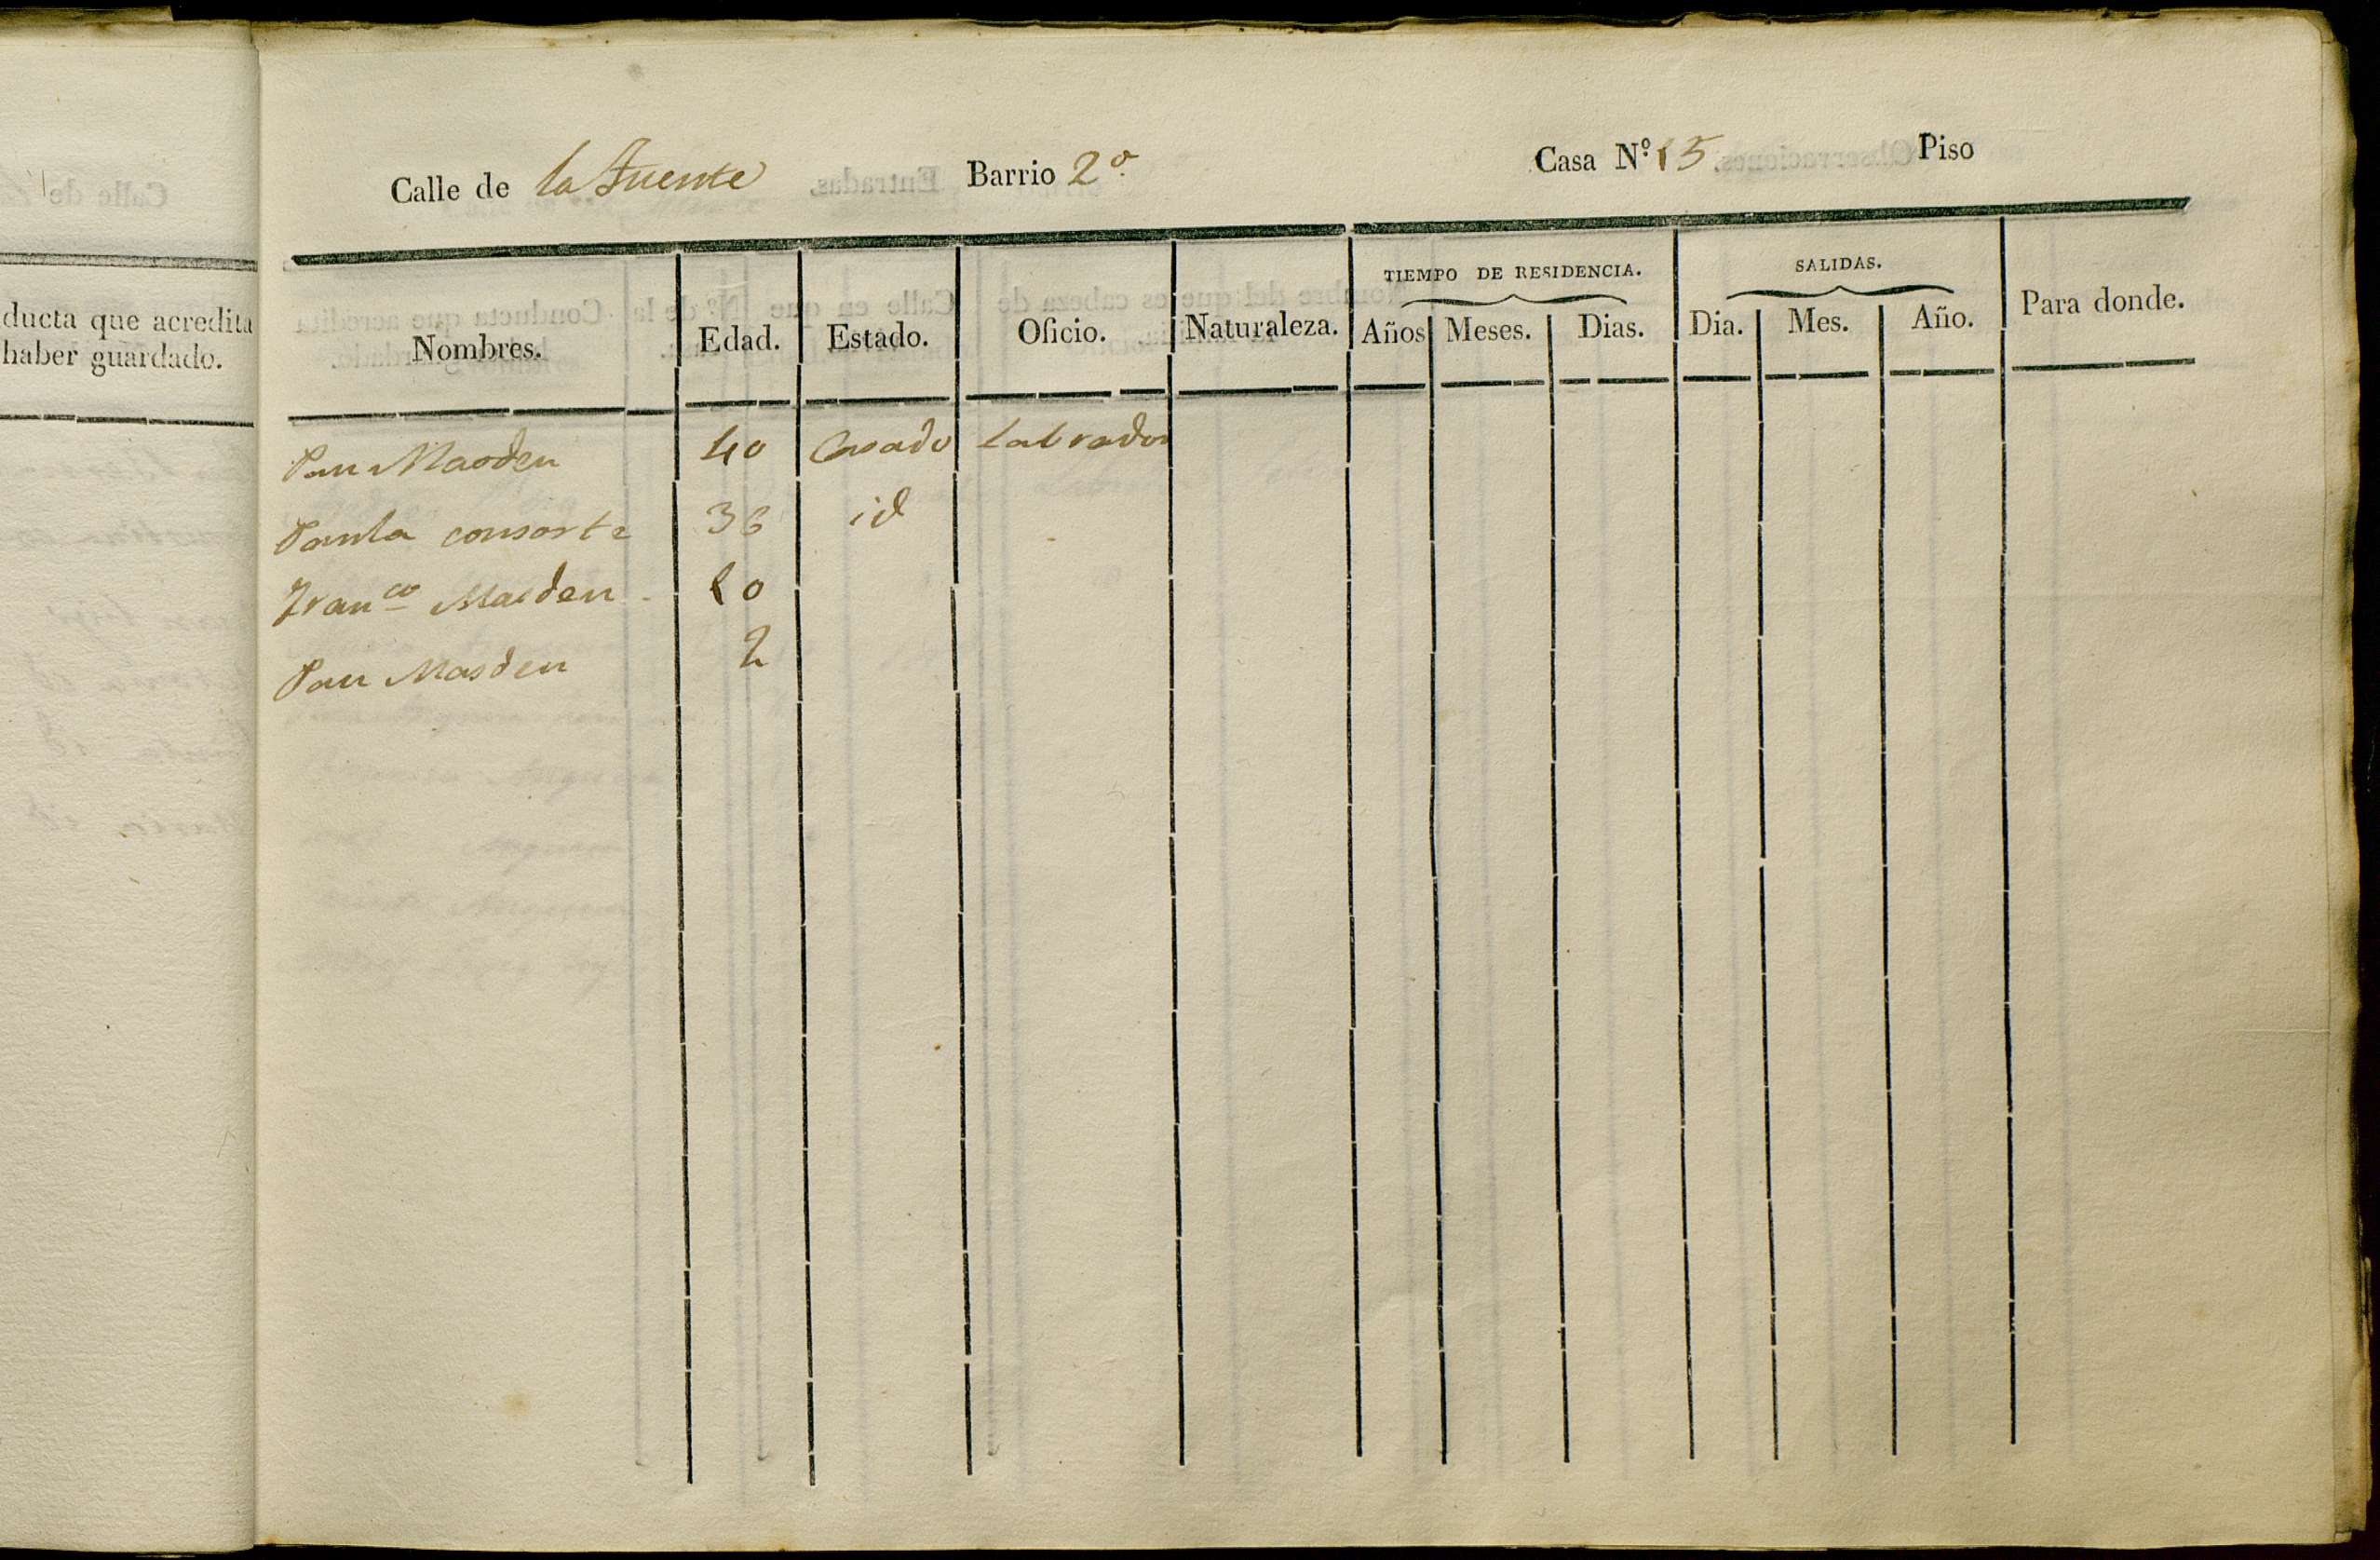 ducta que acredita
haber guardado.
Calle de la Fuente Barrio 2º Casa Nº. 15 Piso
Nombres. Edad. Estado. Oficio. Naturaleza. TIEMPO DE RESIDENCIA. SALIDAS. Para donde.
Años Meses. Dias. Dia. Mes. Año.
Pau Masdeu 40 Casado Labrador
Paula consorte 36 id
Franco Masdeu 10
Pau Masdeu 2